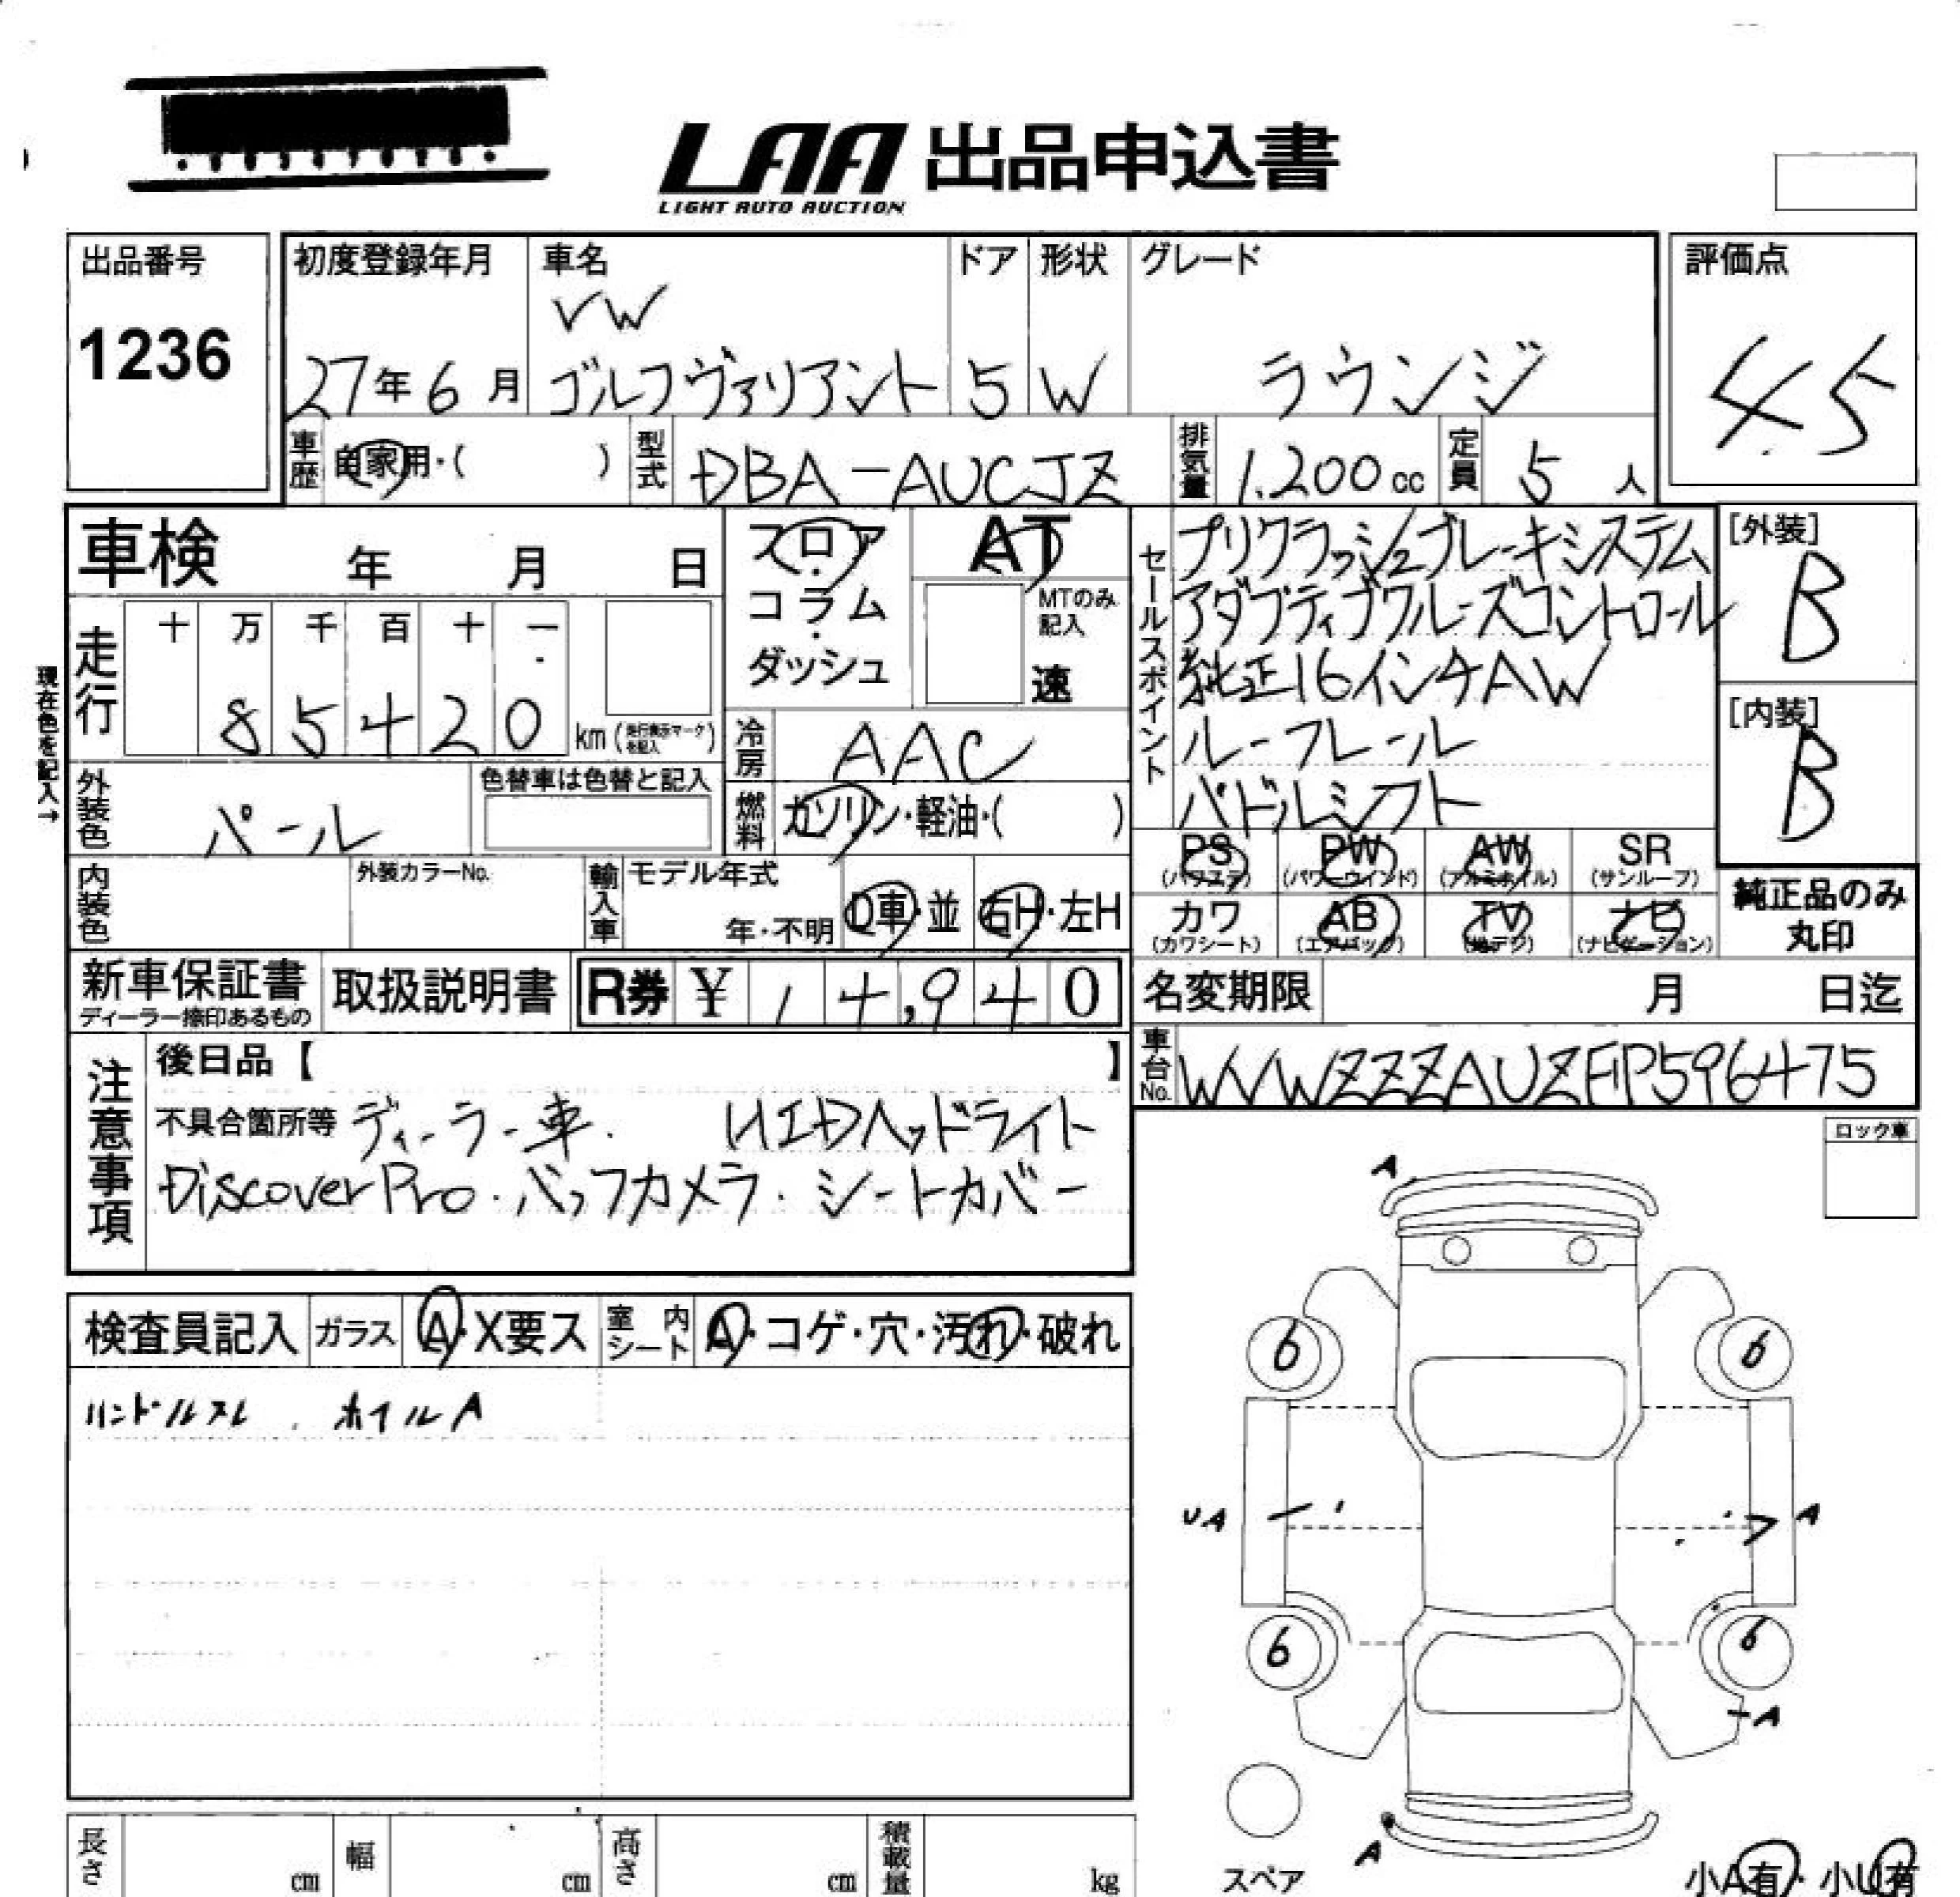 LAA 出品申込書
LIGHT AUTO AUCTION
出品番号
1236
初度登録年月
27年6月
車名
VW
ゴルフヴァリアント
ドア
5
形状
W
グレード
ラウンジ
評価点
4.5
車歴 自家用・( )
型式 DBA-AUCJZ
排気量 1.200cc
定員 5人
車検 年 月 日
フロア・コラム・ダッシュ
AT
MTのみ記入
速
セールスポイント
プリクラッシュブレーキシステム
アダプティブクルーズコントロール
純正16インチAW
ルーフレール
パドルシフト
[外装]
B
[内装]
B
現在色を記入→
走行 十 万 千 百 十 一
85420 km(走行表示マークを記入)
冷房 AAC
外装色 パール
色替車は色替と記入
燃料 ガソリン・軽油・( )
内装色
外装カラーNo.
輸入車 モデル年式
年・不明
D車・並 右H・左H
PS PW AW SR
(パワステ) (パワーウィンド) (アルミホイル) (サンルーフ)
カワ AB TV ナビ
(カワシート) (エアバック) (地デジ) (ナビゲーション)
純正品のみ
丸印
新車保証書
ディーラー捺印あるもの
取扱説明書
R券 ¥ 14,940
名変期限 月 日迄
車台No. WVWZZZAUZFP596475
注意事項
後日品【 】
不具合箇所等 ディーラー車. HIDヘッドライト
Discover Pro・バックカメラ・シートカバー
ロック車
検査員記入 ガラス A・X要ス 室内シート A・コゲ・穴・汚れ・破れ
ハンドルスレ . ホイルA
A
6 6
UA A
6 6
A
A
スペア
小A有・小U有
長さ cm 幅 cm 高さ cm 積載量 kg